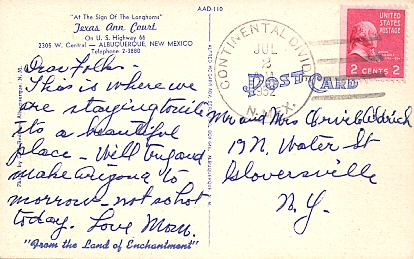 "At The Sign Of The Longhorns"
Texas Ann Court
On U. S. Highway 66
2305 W. Central — ALBUQUERQUE, NEW MEXICO
Telephone 2-3880
AAD-110
CONTINENTAL DIVIDE
JUL
2
1952
N. MEX.
UNITED STATES
POSTAGE
2 CENTS 2
POST CARD
Dear Folks -
This is where we
are staying tonite
its a beautiful
place - Will try and
make Arizona to
morrow - not so hot
today. Love Mom.
"From the Land of Enchantment"
Mr and Mrs Orvie Aldrich
19 N. Water St
Gloversville
N.Y.